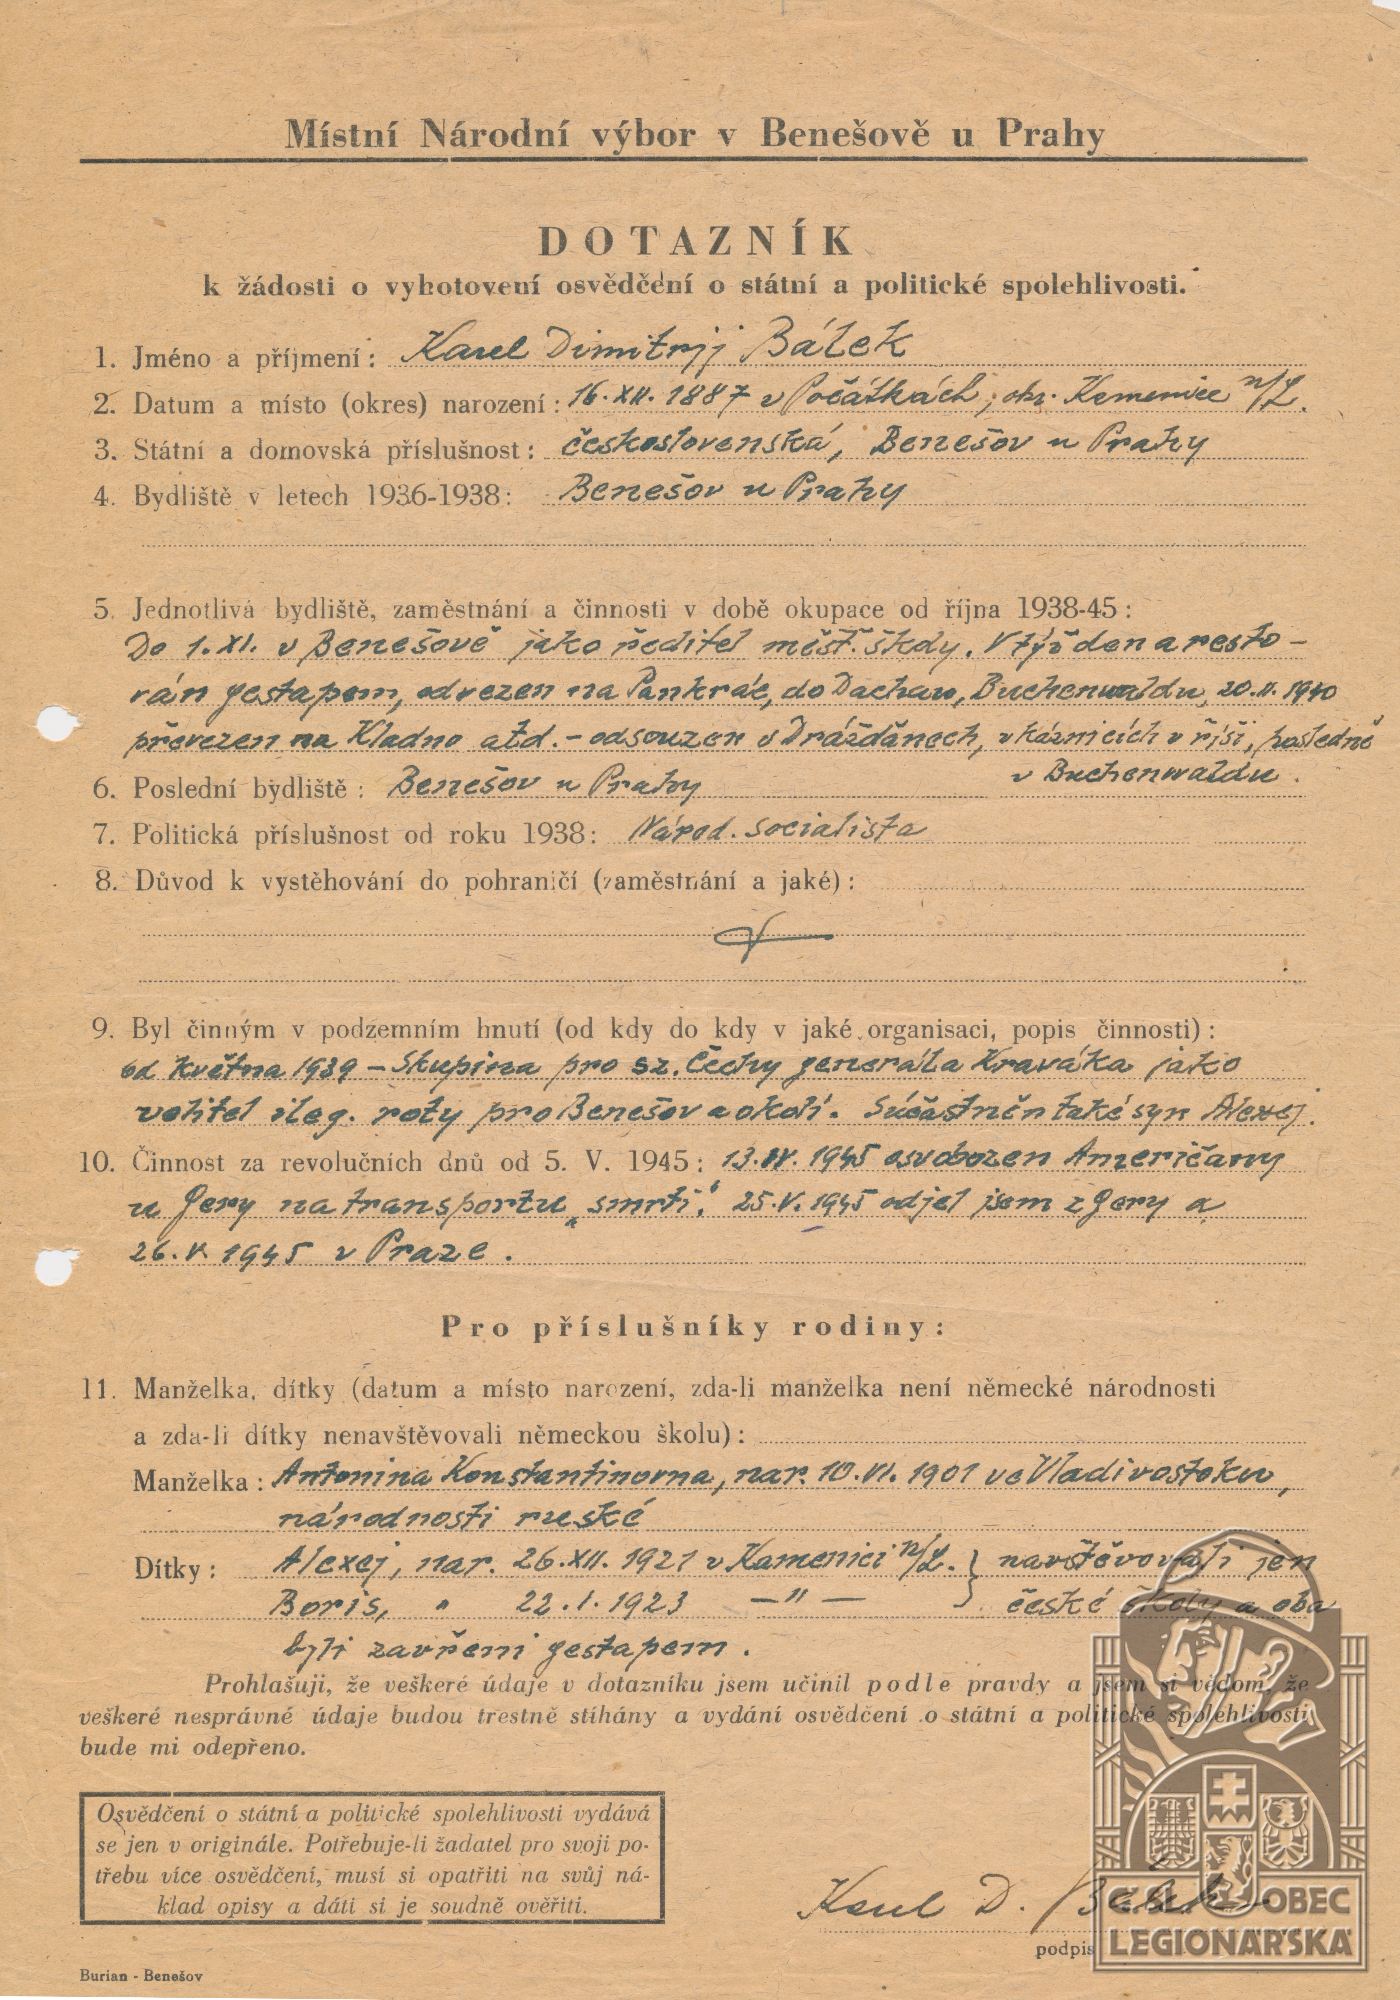 Místní Národní výbor v Benešově u Prahy
DOTAZNÍK
k žádosti o vyhotovení osvědčení o státní a politické spolehlivosti.
1. Jméno a příjmení: Karel Dimitrij Bálek
2. Datum a místo (okres) narození: 16. XII. 1887 v Počátkách, okr. Kamenice n/L.
3. Státní a domovská příslušnost: československá, Benešov u Prahy
4. Bydliště v letech 1936-1938: Benešov u Prahy
5. Jednotlivá bydliště, zaměstnání a činnosti v době okupace od října 1938-45:
Do 1. XI. v Benešově jako ředitel měšť. školy. V týž den aresto-
ván gestapem, odvezen na Pankrác, do Dachau, Buchenwaldu, 20. II. 1940
převezen na Kladno atd. - odsouzen v Drážďanech, v káznicích v říši, posledně
v Buchenwaldu.
6. Poslední bydliště: Benešov u Prahy
7. Politická příslušnost od roku 1938: Národ. socialista
8. Důvod k vystěhování do pohraničí (zaměstnání a jaké):
9. Byl činným v podzemním hnutí (od kdy do kdy v jaké organisaci, popis činnosti):
od května 1939 - Skupina pro sz. Čechy generála Kraváka jako
velitel ileg. roty pro Benešov a okolí. Súčastněn také syn Alexej.
10. Činnost za revolučních dnů od 5. V. 1945: 13. IV. 1945 osvobozen Američany
u Gery na transportu „smrti". 25. V. 1945 odjel jsem z Gery a
26. V. 1945 v Praze.
Pro příslušníky rodiny:
11. Manželka, dítky (datum a místo narození, zda-li manželka není německé národnosti
a zda-li dítky nenavštěvovali německou školu):
Manželka: Antonina Konstantinovna, nar. 10. VI. 1901 ve Vladivostoku,
národnosti ruské
Dítky: Alexej, nar. 26. XII. 1921 v Kamenici n/L. } navštěvovali jen
Boris, " 22. I. 1923 — " — české školy a oba
byli zavřeni gestapem.
Prohlašuji, že veškeré údaje v dotazníku jsem učinil podle pravdy a jsem si vědom, že
veškeré nesprávné údaje budou trestně stíhány a vydání osvědčení o státní a politické spolehlivosti
bude mi odepřeno.
Osvědčení o státní a politické spolehlivosti vydává
se jen v originále. Potřebuje-li žadatel pro svoji po-
třebu více osvědčení, musí si opatřiti na svůj ná-
klad opisy a dáti si je soudně ověřiti.
Karel D. Bálek
podpis
Burian - Benešov
Č.S. OBEC
LEGIONÁŘSKÁ